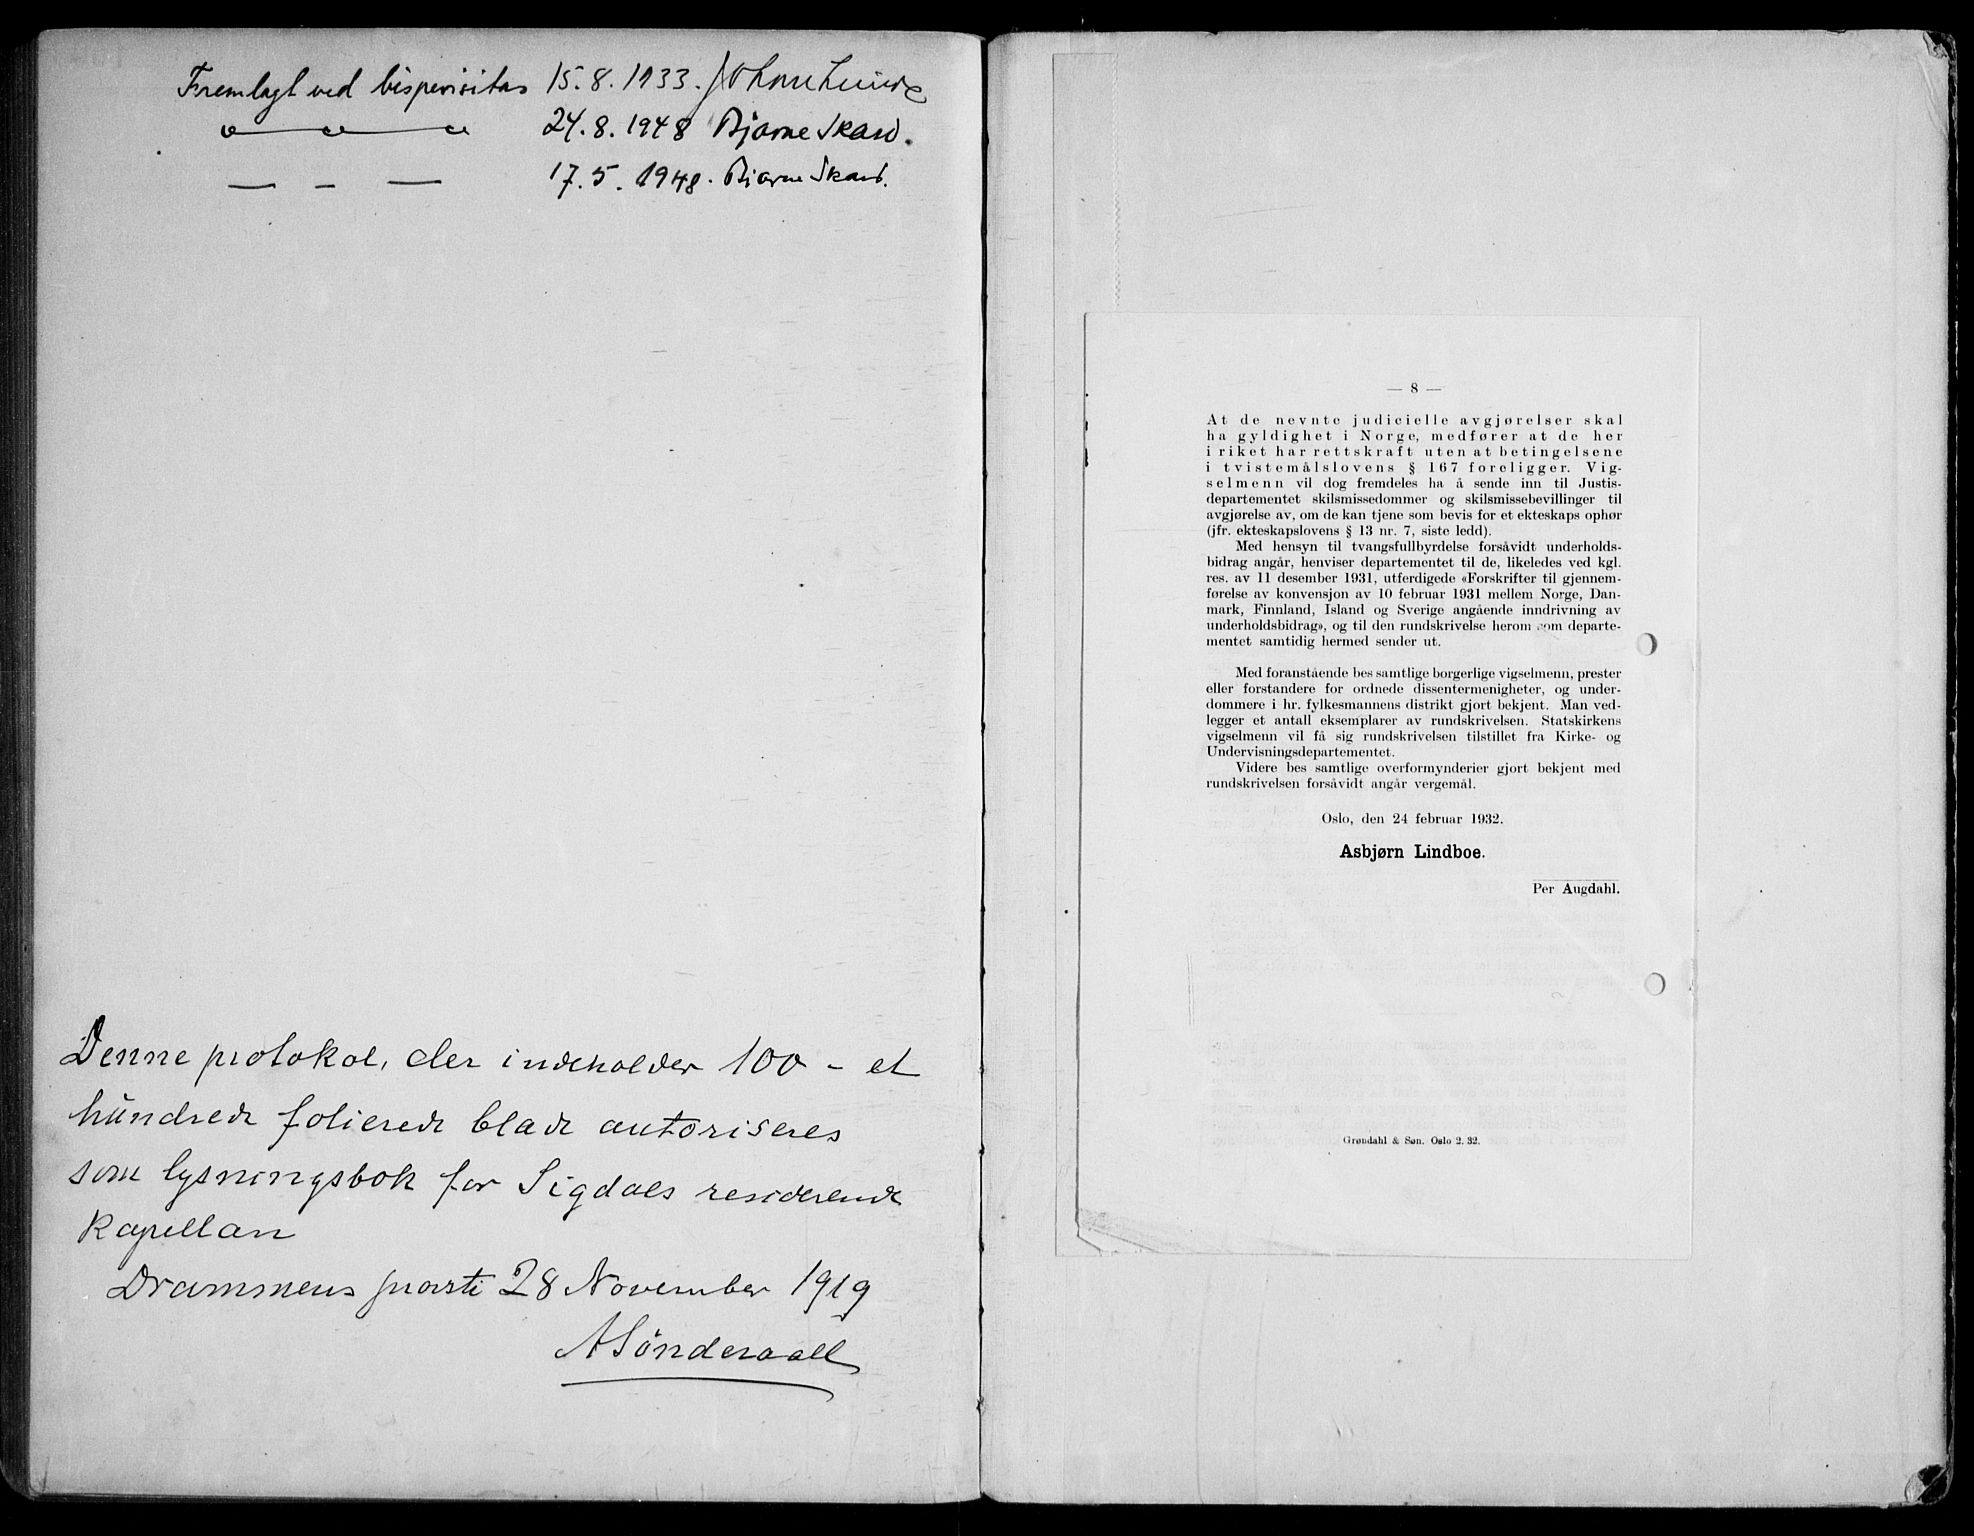 Fremlagt ved bispevisitas 15.8.1933. Johan Lunde
24.8.1948 Bjarne Skard.
17.5.1948. Bjarne Skard.
Denne protokol, der indeholder 100 - et
hundrede folierede blade autoriseres
som lysningsbok for Sigdals residerende
kapellan
Drammens prosti 28 November 1919
— 8 —
At de nevnte judicielle avgjørelser skal
ha gyldighet i Norge, medfører at de her
i riket har rettskraft uten at betingelsene
i tvistemålslovens § 167 foreligger. Vig-
selmenn vil dog fremdeles ha å sende inn til Justis-
departementet skilsmissedommer og skilsmissebevillinger til
avgjørelse av, om de kan tjene som bevis for et ekteskaps ophør
(jfr. ekteskapslovens § 13 nr. 7, siste ledd).
Med hensyn til tvangsfullbyrdelse forsåvidt underholds-
bidrag angår, henviser departementet til de, likeledes ved kgl.
res. av 11 desember 1931, utferdigede «Forskrifter til gjennem-
førelse av konvensjon av 10 februar 1931 mellem Norge, Dan-
mark, Finnland, Island og Sverige angående inndrivning av
underholdsbidrag», og til den rundskrivelse herom som departe-
mentet samtidig hermed sender ut.
Med foranstående bes samtlige borgerlige vigselmenn, prester
eller forstandere for ordnede dissentermenigheter, og under-
dommere i hr. fylkesmannens distrikt gjort bekjent. Man ved-
legger et antall eksemplarer av rundskrivelsen. Statskirkens
vigselmenn vil få sig rundskrivelsen tilstillet fra Kirke- og
Undervisningsdepartementet.
Videre bes samtlige overformynderier gjort bekjent med
rundskrivelsen forsåvidt angår vergemål.
Oslo, den 24 februar 1932.
Asbjørn Lindboe.
Per Augdahl.
Grøndahl & Søn. Oslo 2. 32.